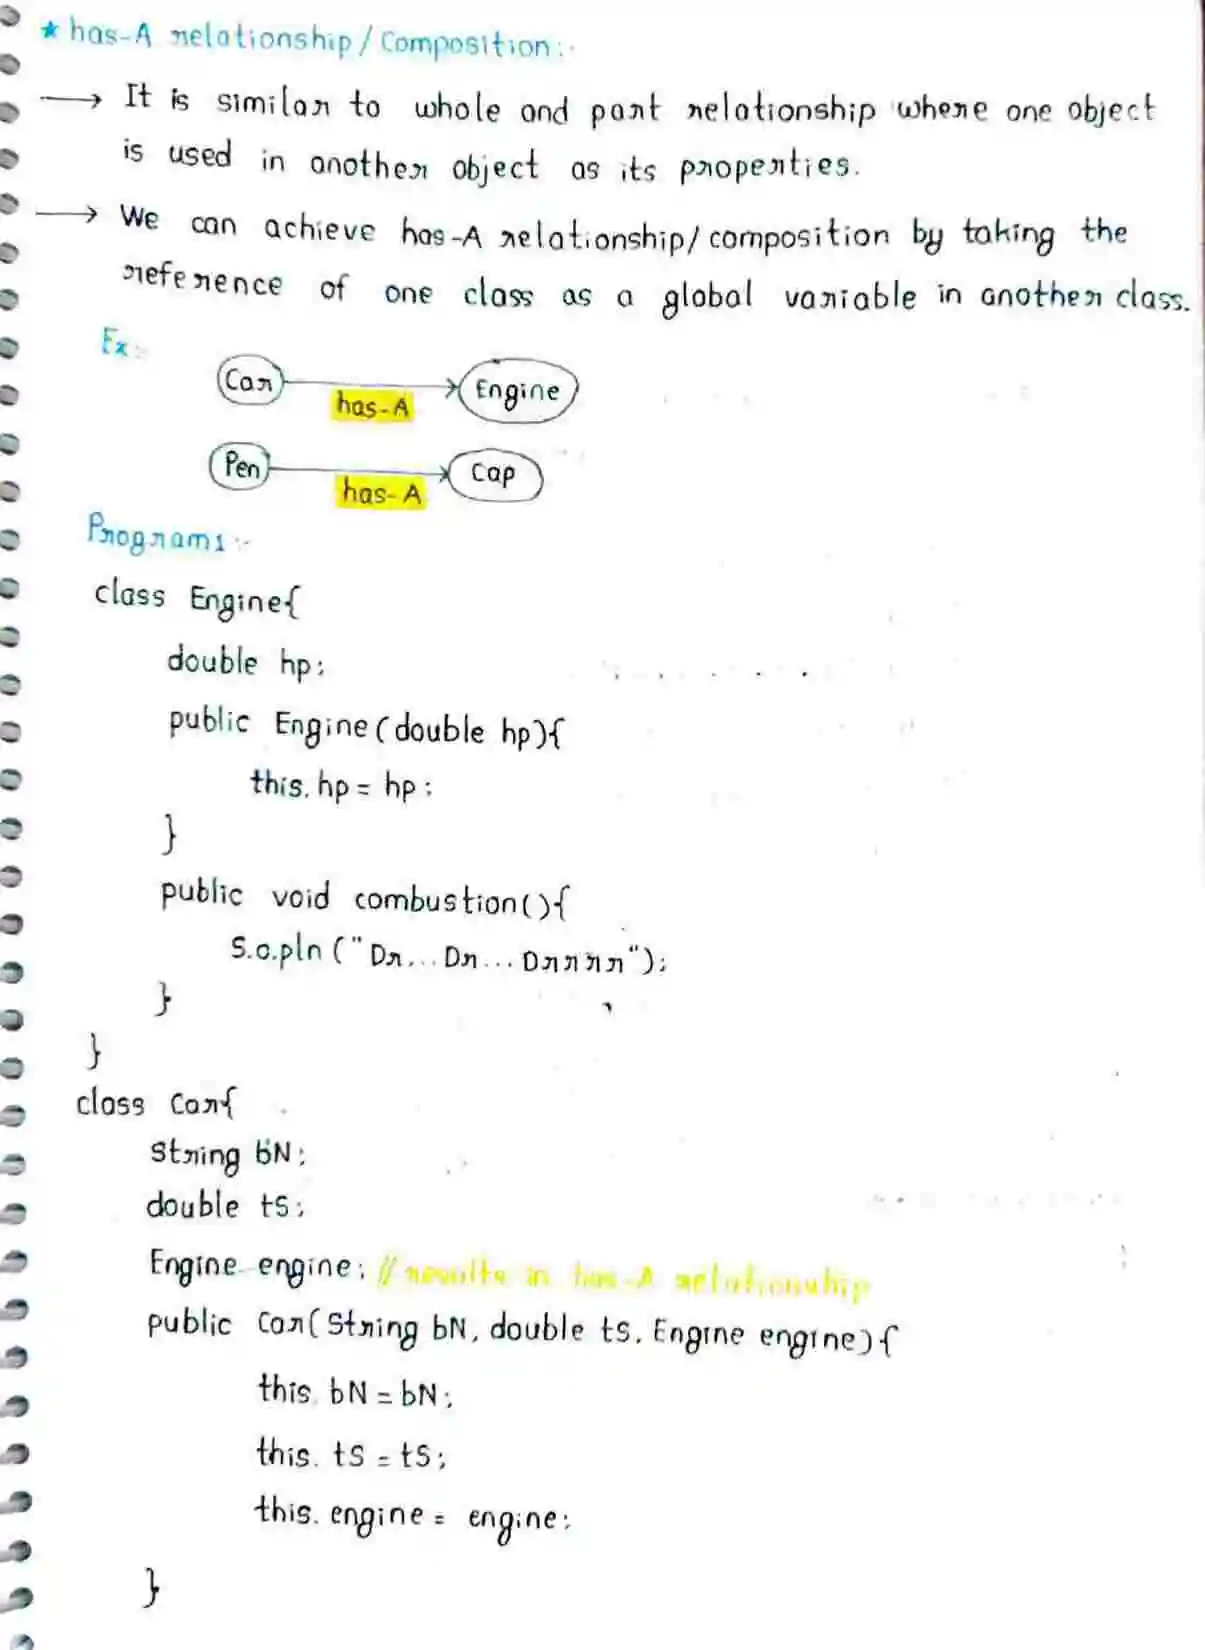 * has-A relationship/Composition:-
→ It is similar to whole and part relationship where one object
is used in another object as its properties.
→ We can achieve has-A relationship/composition by taking the
reference of one class as a global variable in another class.
Ex:-
Car has-A Engine
Pen has-A Cap
Program1:-
class Engine{
double hp;
public Engine(double hp){
this.hp = hp;
}
public void combustion(){
S.o.pln("Dr... Dr... Drrrr");
}
}
class Car{
String bN;
double tS;
Engine engine; // results in has-A relationship
public Car(String bN, double tS, Engine engine){
this.bN = bN;
this.tS = tS;
this.engine = engine;
}